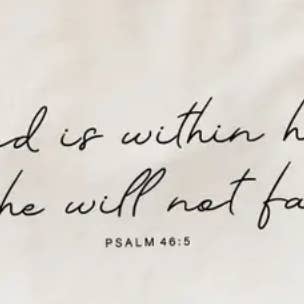 d is within h
he will not fa
PSALM 46:5